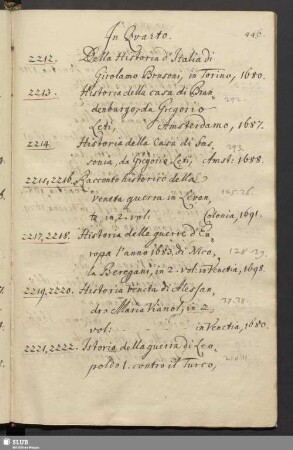 In Qvarto.
2212. Della Historia d'Italia di
Girolamo Brusoni, in Torino, 1680.
2213. Historia della casa di Bran
denburgo, da Gregorio
Leti, Amsterdamo, 1687.
2214. Historia della Casa di Sas
sonia, da Gregorio Leti, Amst: 1688.
2215, 2216. Racconto historico della
veneta guerra in Levan
te, in 2. vol: Colonia, 1691.
2217, 2218. Historia delle guerre d'Eu
ropa l'anno 1683. di Nico,
la Beregani, in 2. vol: in Venetia, 1698.
2219, 2220. Historia Veneta di Alessan,
dro Maria Vianol, in 2
vol: in Venetia, 1680.
2221, 2222. Istoria della guerra di Leo
poldo I. contro il Turco,